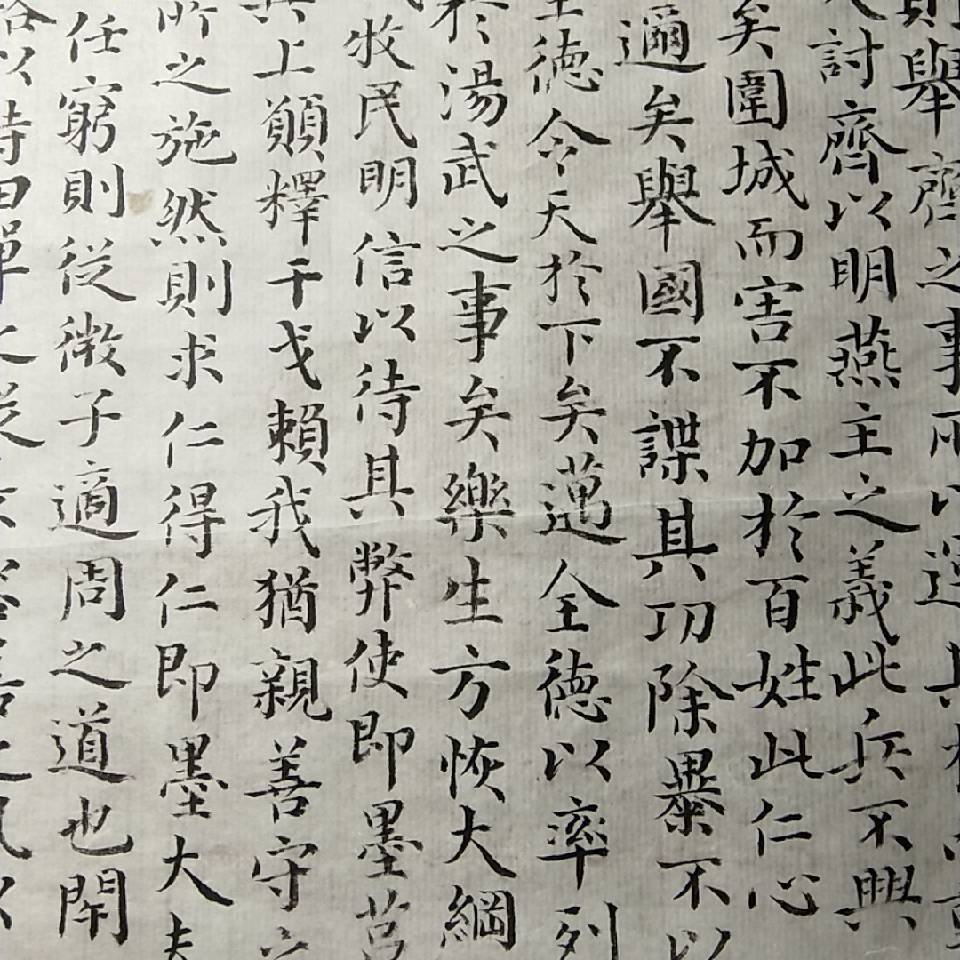 舉齊之事所以運其
討齊以明燕主之義此兵不興
矣圍城而害不加於百姓此仁心
邇矣舉國不諜其功除暴不以
至德令天於下矣邁全德以率列
於湯武之事矣樂生方恢大綱
牧民明信以待其弊使即墨莒
其上願釋干戈賴我猶親善守
所之施然則求仁得仁即墨大夫
任窮則從微子適周之道也開
以待田單之善之風以